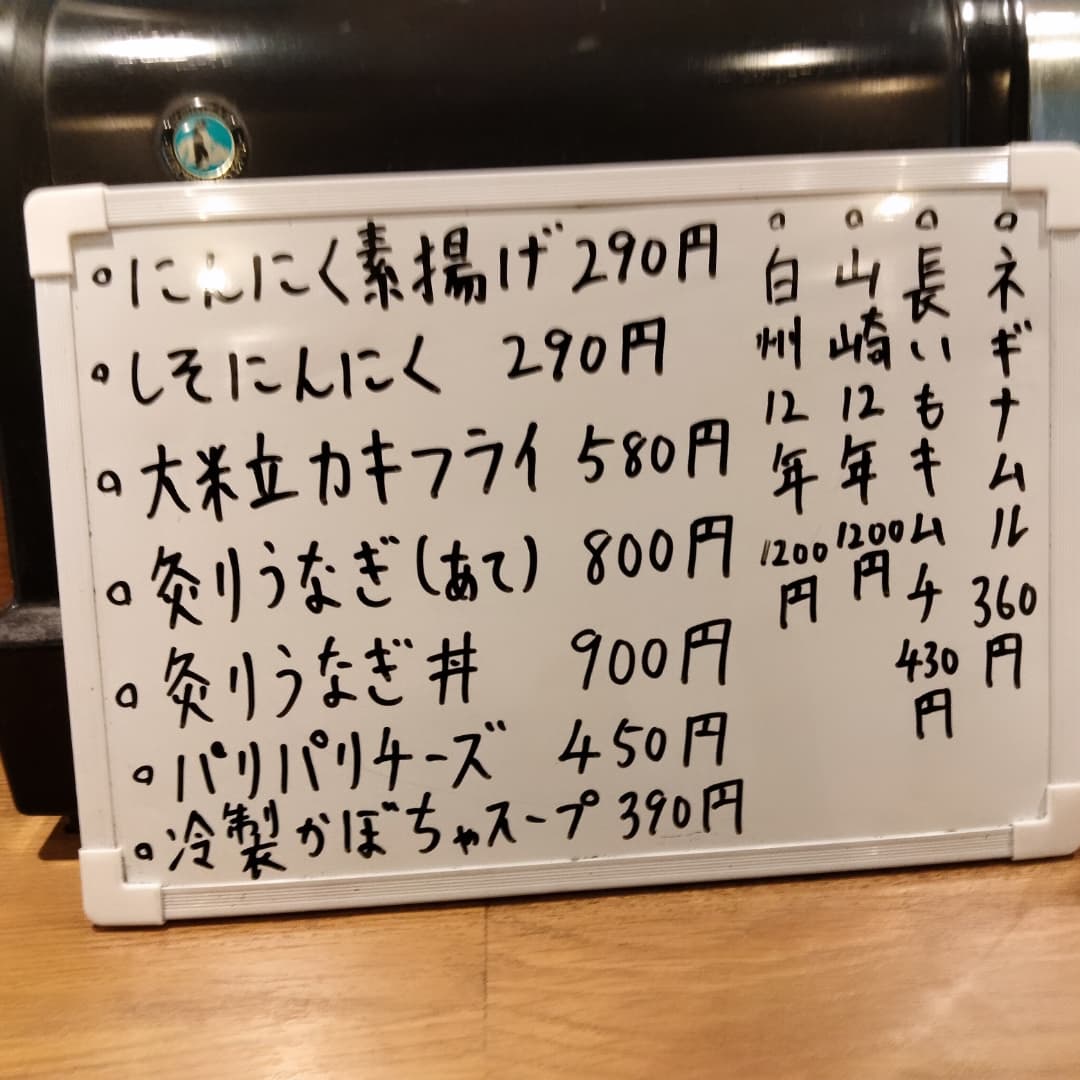 ○にんにく素揚げ 290円
○しそにんにく 290円
○大粒カキフライ 580円
○炙りうなぎ(あて) 800円
○炙りうなぎ丼 900円
○パリパリチーズ 450円
○冷製かぼちゃスープ 390円
○ネギナムル 360円
○長いもキムチ 430円
○山崎12年 1200円
○白州12年 1200円